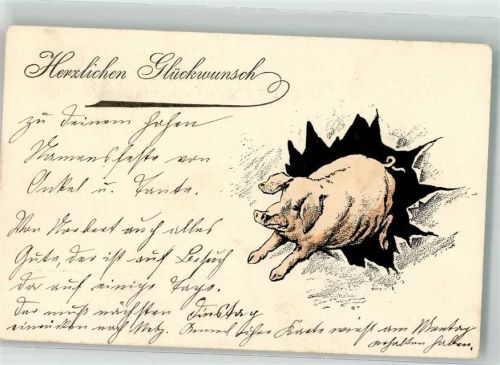 Herzlichen Glückwunsch
zu Deinem hohen
Namensfeste von
Onkel u. Tante.
Von Norbert auch alles
Gute, der ist auf Besuch
da auf einige Tage.
Der muß nächsten Dinstag
einrücken nach Metz. Karte wirst am Montag
erhalten haben.